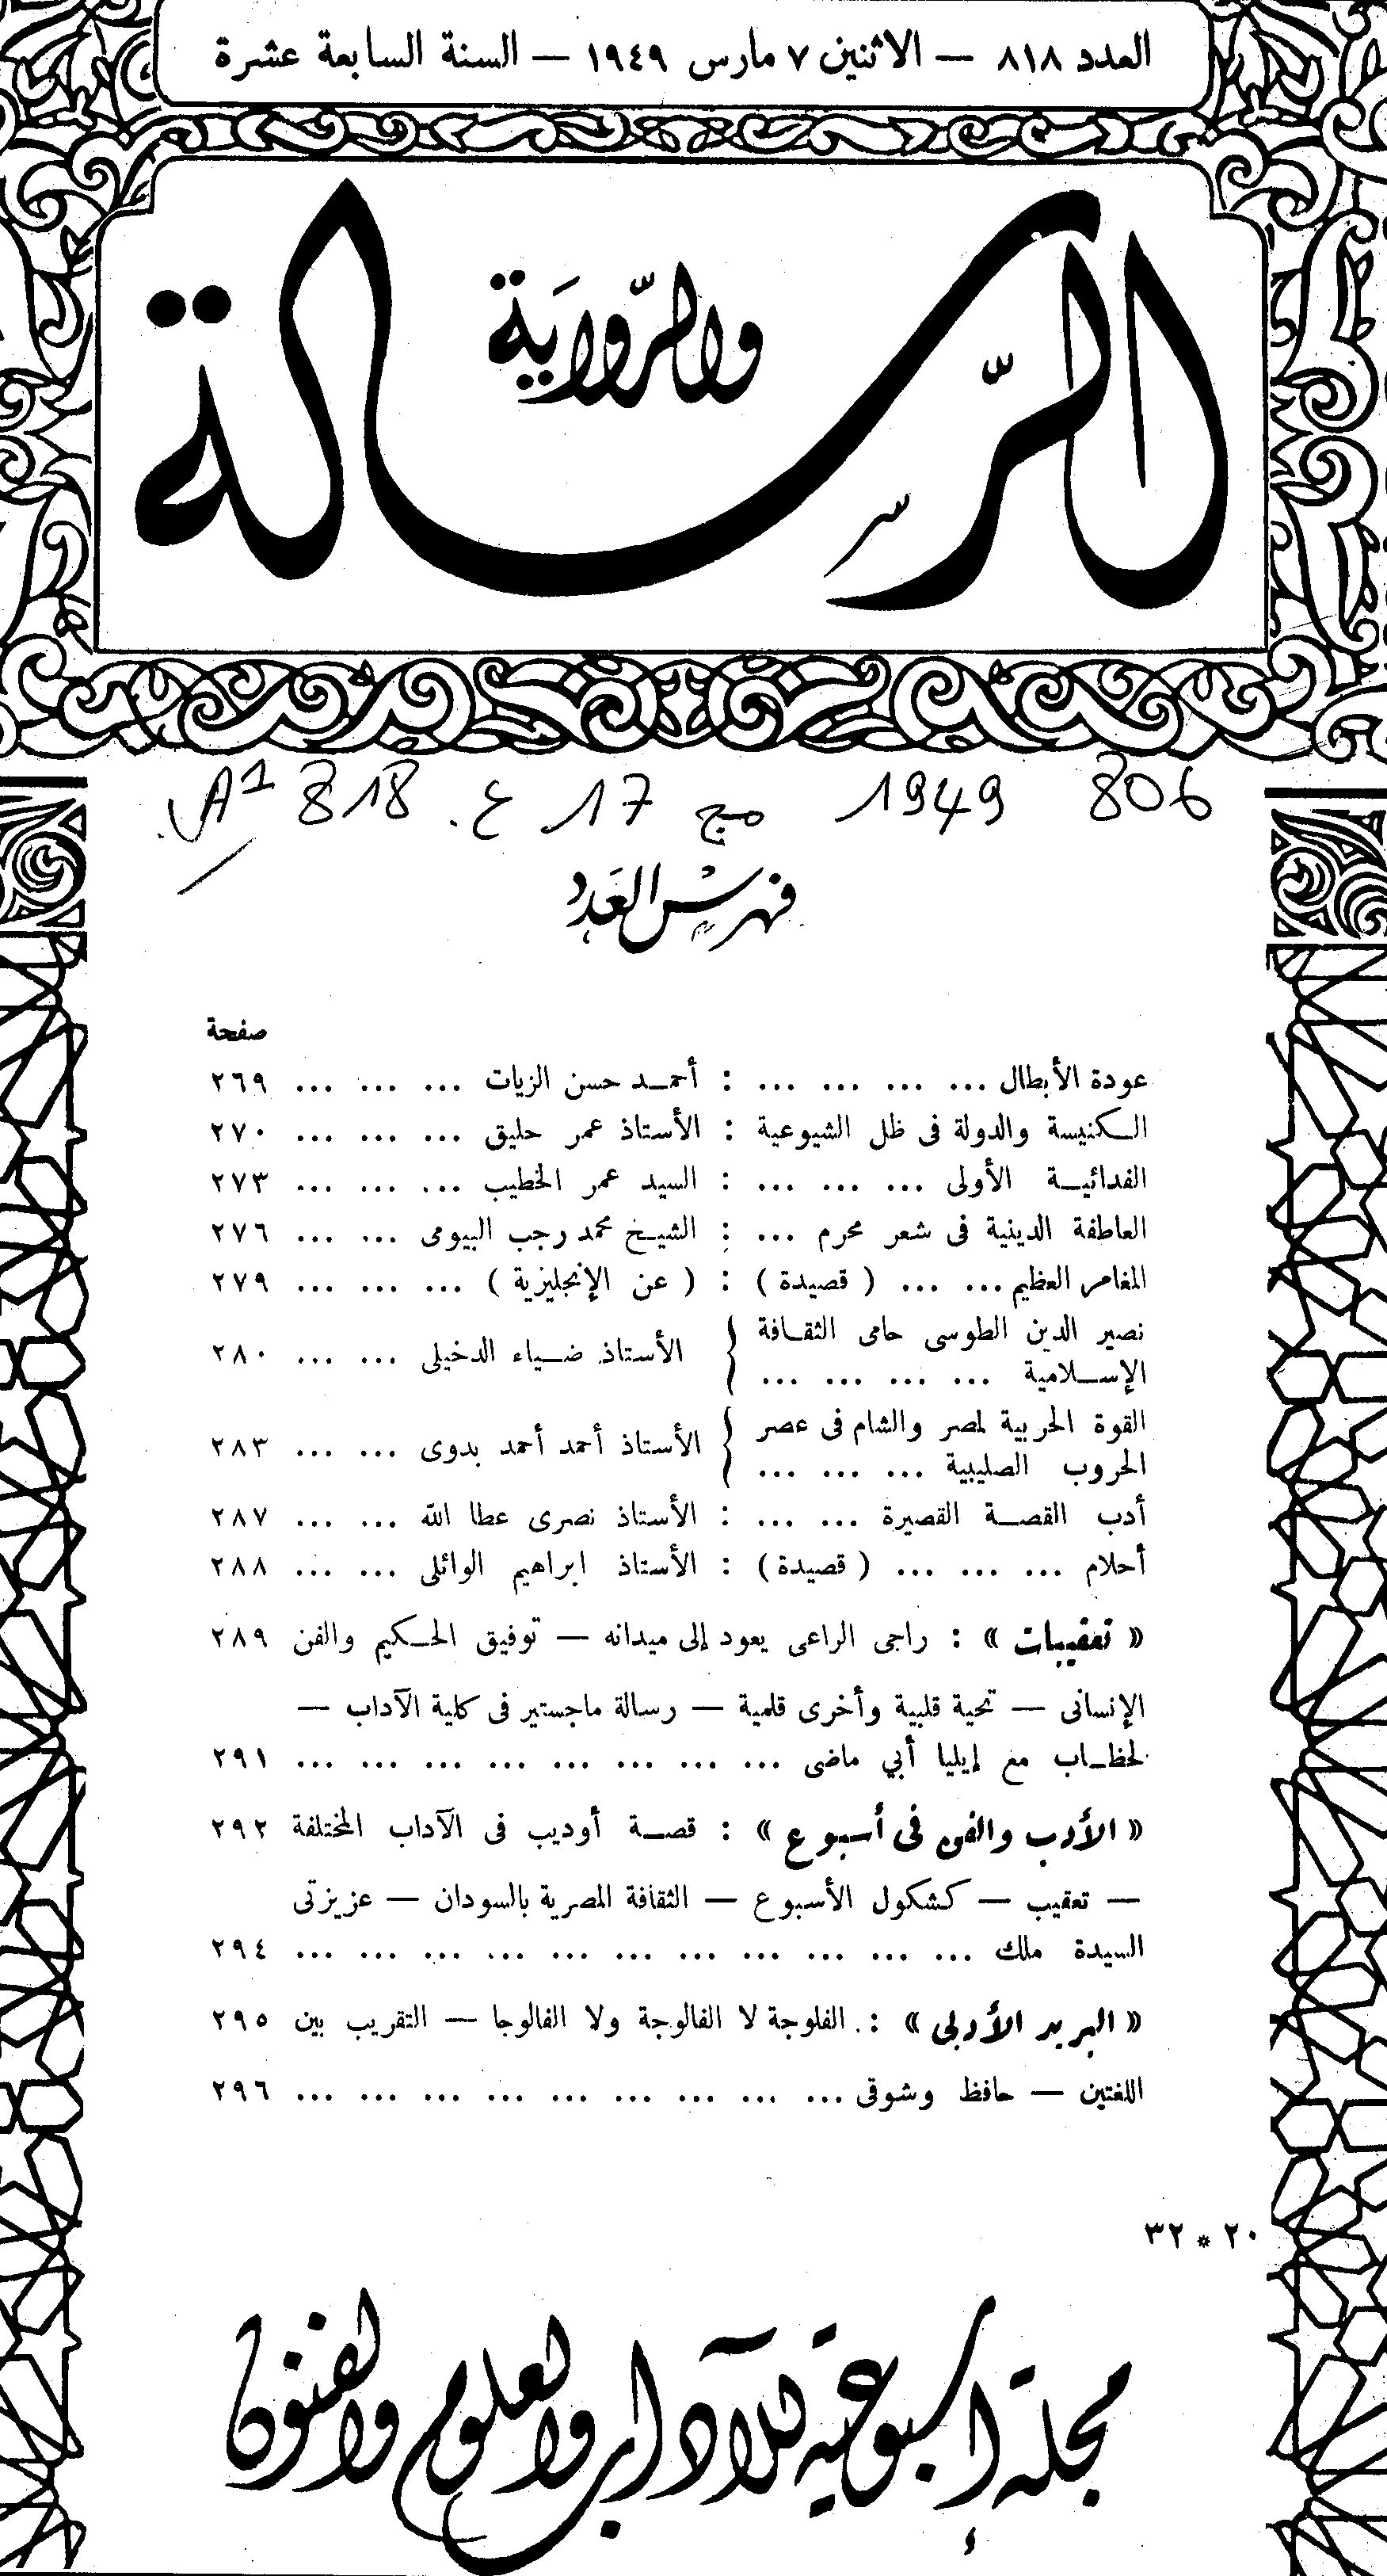 العدد ٨١٨ — الاثنين ٧ مارس ١٩٤٩ — السنة السابعة عشرة
الرسالة
والرّواية
806 1949 مج 17 ع. 818
فهرس العدد
صفحة
عودة الأبطال ... ... ... ... : أحمـد حسن الزيات ... ... ... ٢٦٩
الـكنيسة والدولة فى ظل الشيوعية : الأستاذ عمر حليق ... ... ... ٢٧٠
الفدائيـة الأولى ... ... ... : السيد عمر الخطيب ... ... ... ٢٧٣
العاطفة الدينية فى شعر محرم ... : الشيـخ محمد رجب البيومى ... ... ٢٧٦
المغامر العظيم ... ... ( قصيدة ) : ( عن الإنجليزية ) ... ... ... ٢٧٩
نصير الدين الطوسى حامى الثقـافة
الإسـلامية ... ... ... ... } الأستاذ ضـياء الدخيلى ... ... ٢٨٠
القوة الحربية لمصر والشام فى عصر
الحروب الصليبية ... ... ... } الأستاذ أحمد أحمد بدوى ... ... ٢٨٣
أدب القصـة القصيرة ... ... : الأستاذ نصرى عطا الله ... ... ٢٨٧
أحلام ... ... ... ( قصيدة ) : الأستاذ ابراهيم الوائلى ... ... ٢٨٨
« تعقيبات » : راجى الراعى يعود إلى ميدانه — توفيق الحـكيم والفن ٢٨٩
الإنسانى — تحية قلبية وأخرى قلمية — رسالة ماجستير فى كلية الآداب —
لحظـاب مع إيليا أبي ماضى ... ... ... ... ... ... ... ... ٢٩١
« الأدب والفن فى أسبوع » : قصـة أوديب فى الآداب المختلفة ٢٩٢
— تعقيب — كشكول الأسبوع — الثقافة المصرية بالسودان — عزيزتى
السيدة ملك ... ... ... ... ... ... ... ... ... ... ... ٢٩٤
« البريد الأدبى » : الفلوجة لا الفالوجة ولا الفالوجا — التقريب بين ٢٩٥
اللغتين — حافظ وشوقى ... ... ... ... ... ... ... ... ... ٢٩٦
٢٠ * ٣٢
مجلة إسبوعية للآداب والعلوم والفنون